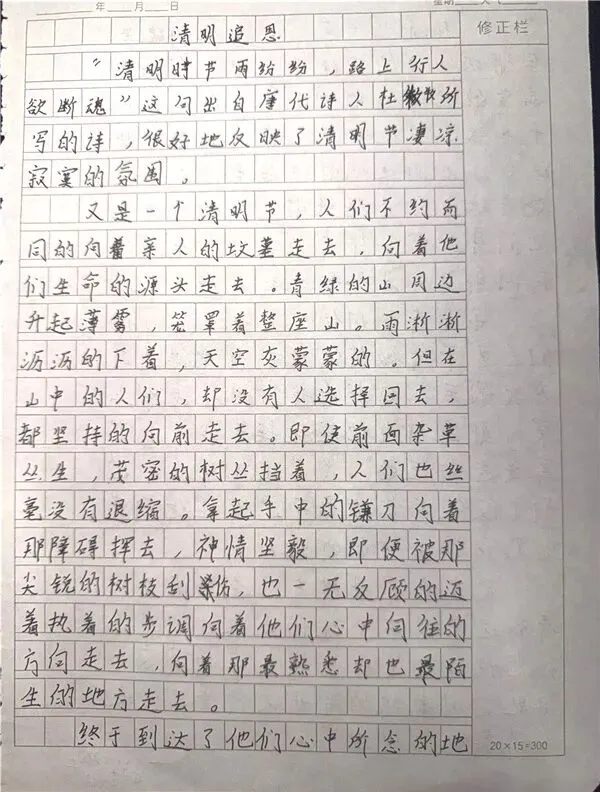 年 月 日 星期
修正栏
清明追思
“清明时节雨纷纷，路上行人
欲断魂”这句出自唐代诗人杜牧所
写的诗，很好地反映了清明节凄凉
寂寞的氛围。
又是一个清明节，人们不约而
同的向着亲人的坟墓走去，向着他
们生命的源头走去。青绿的山周边
升起薄雾，笼罩着整座山。雨淅淅
沥沥的下着，天空灰蒙蒙的。但在
山中的人们，却没有人选择回去，
都坚持的向前走去。即使前面杂草
丛生，茂密的树丛挡着，人们也丝
毫没有退缩。拿起手中的镰刀向着
那障碍挥去，神情坚毅，即便被那
尖锐的树枝刮伤，也一无反顾的迈
着执着的步调向着他们心中向往的
方向走去，向着那最熟悉却也最陌
生的地方走去。
终于到达了他们心中所念的地
20×15=300